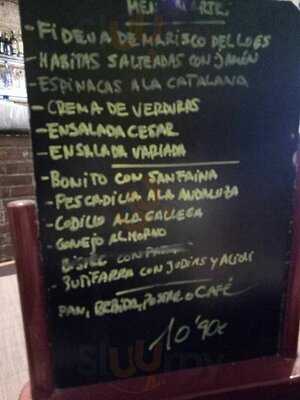 MENÚ MARTES
-FIDEUA DE MARISCO DEL LOES
-HABITAS SALTEADAS CON JAMÓN
-ESPINACAS A LA CATALANA
-CREMA DE VERDURAS
-ENSALADA CESAR
-ENSALADA VARIADA
-BONITO CON SANFAINA
-PESCADILLA A LA ANDALUZA
-CODILLO A LA GALLEGA
-CONEJO AL HORNO
-BISTEC CON
-BUTIFARRA CON JUDIAS Y ALIOLI
PAN, BEBIDA, POSTRE O CAFÉ
10'90€
sluurpy